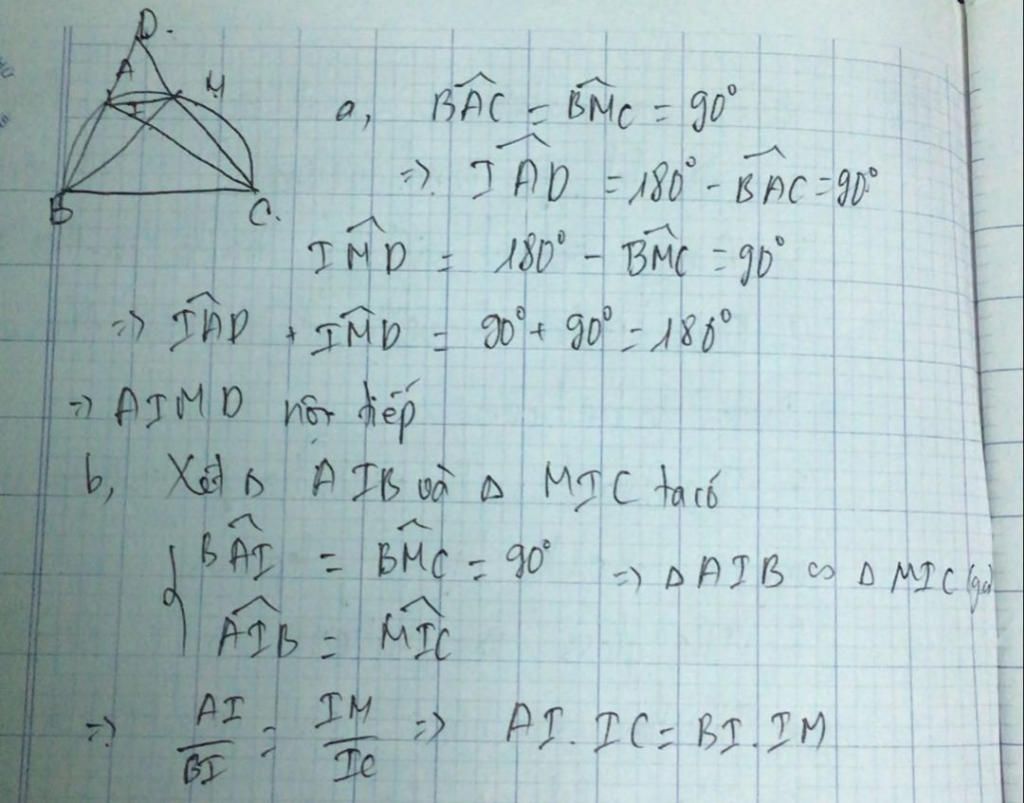 D.
A
M
I
B
C.
a, $\widehat{BAC} = \widehat{BMC} = 90^\circ$
=> $\widehat{IAD} = 180^\circ - \widehat{BAC} = 90^\circ$
$\widehat{IMD} = 180^\circ - \widehat{BMC} = 90^\circ$
=> $\widehat{IAD} + \widehat{IMD} = 90^\circ + 90^\circ = 180^\circ$
=> AIMD nội tiếp
b, Xét Δ AIB và Δ MIC ta có
$\widehat{BAI} = \widehat{BMC} = 90^\circ$ => Δ AIB ∽ Δ MIC (gg)
$\widehat{AIB} = \widehat{MIC}$
=> $\frac{AI}{BI} = \frac{IM}{IC}$ => AI. IC = BI. IM